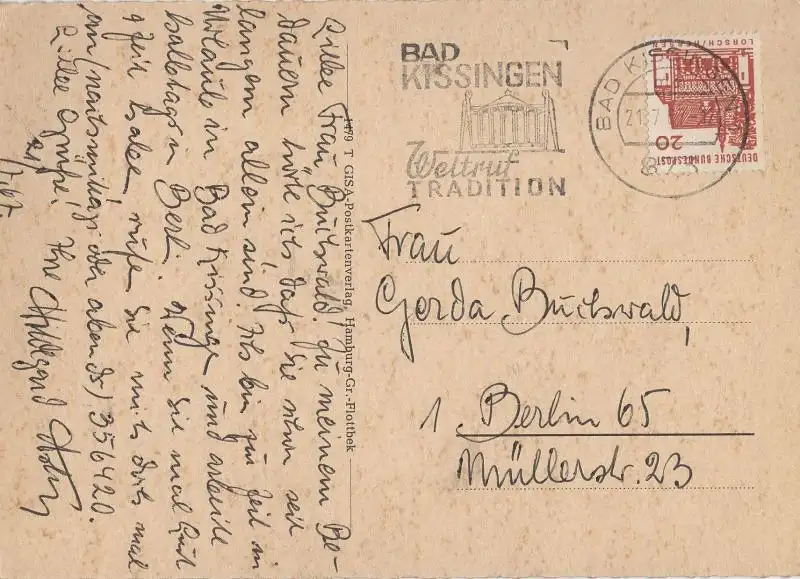 BAD
KISSINGEN
Weltruf
TRADITION
BAD KISSINGEN
21.7
873
LORSCH/HESSEN
20
DEUTSCHE BUNDESPOST
Frau
Gerda Buchwald,
1 Berlin 65
Müllerstr. 23
1479 T GISA-Postkartenverlag, Hamburg-Gr.-Flottbek
Liebe Frau Buchwald! Zu meinem Be-
dauern hörte ich, daß Sie nun seit
langem allein sind. Ich bin zur Zeit in
Urlaub in Bad Kissingen und arbeite
halbtags in Berl. Wenn Sie mal Lust
u Zeit haben, rufen Sie mich doch mal
an (nachmittags oder abends) 356420.
Liebe Grüße! Ihre Hildegard
21/7.67.